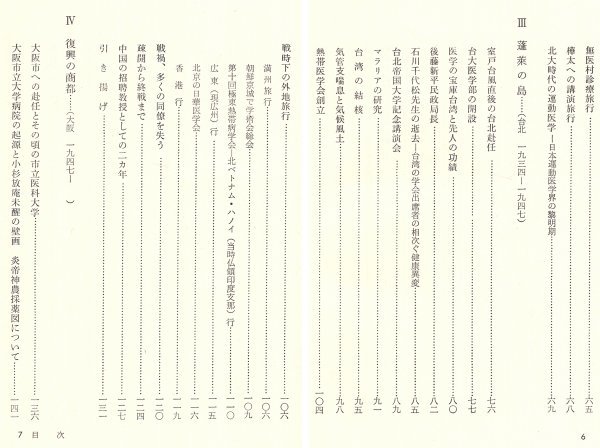 無医村診療旅行……六五
樺太への講演旅行……六八
北大時代の運動医学―日本運動医学界の黎明期……六九
Ⅲ 蓬莱の島……（台北 一九三四―一九四七）
室戸台風直後の台北赴任……七六
台大医学部の開設……七七
医学の宝庫台湾と先人の功績……八〇
後藤新平民政局長……八二
石川千代松先生の逝去―台湾の学会出席者の相次ぐ健康異変……八四
台北帝国大学記念講演会……八九
マラリアの研究……九一
台湾の結核……九五
気管支喘息と気候風土……九八
熱帯医学会創立……一〇四
6
戦時下の外地旅行……一〇六
満州旅行……一〇六
朝鮮京城で学術会総会……一〇九
第十回極東熱帯病学会―北ベトナム・ハノイ（当時仏領印度支那）行……一一〇
広東（現広州）行……一一五
北京の日華医学会……一一六
香港行……一一九
戦禍、多くの同僚を失う……一二〇
疎開から終戦まで……一二四
中国の招聘教授としての二カ年……一二七
引き揚げ……一三一
Ⅳ 復興の商都……（大阪 一九四七― ）
大阪市への赴任とその頃の市立医科大学……一三六
大阪市立大学病院の起源と小杉放庵未醒の壁画 炎帝神農採薬図について……一四一
7 目 次